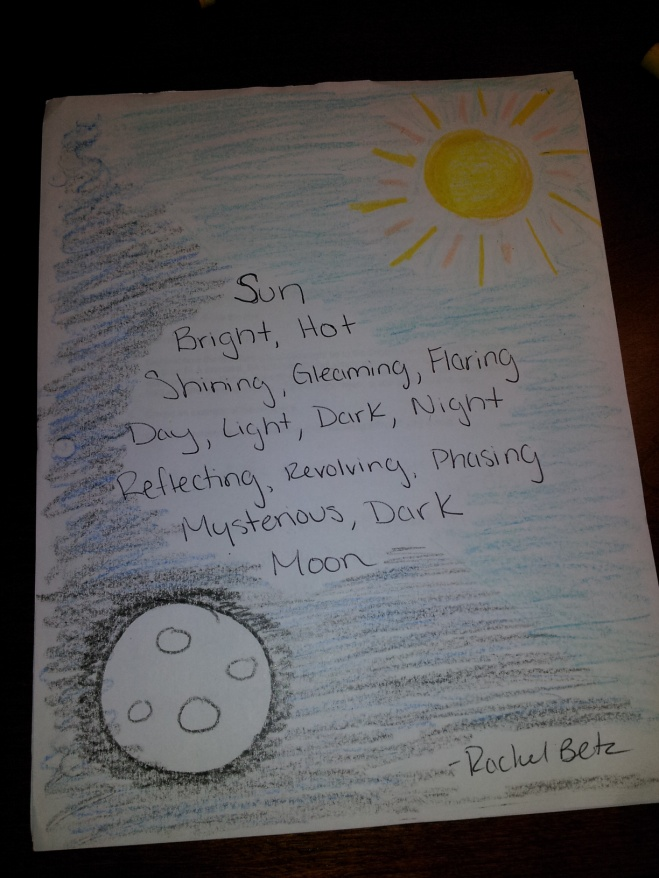 Sun
Bright, Hot
Shining, Gleaming, Flaring
Day, Light, Dark, Night
Reflecting, Revolving, Phasing
Mysterious, Dark
Moon
-Rachel Betz